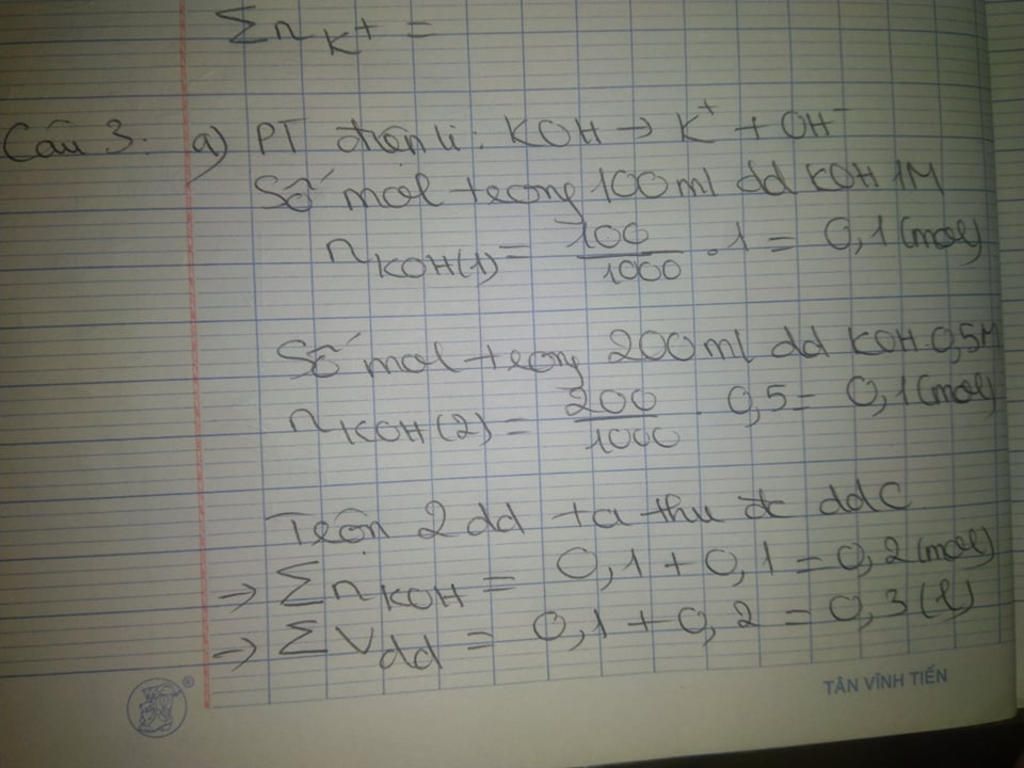 Σn K⁺ =
Câu 3: a) PT điện li: KOH → K⁺ + OH⁻
Số mol trong 100ml dd KOH 1M
n KOH(1) = 100/1000 . 1 = 0,1 (mol)
Số mol trong 200ml dd KOH 0,5M
n KOH(2) = 200/1000 . 0,5 = 0,1 (mol)
Trộn 2 dd ta thu đc ddC
→ Σn KOH = 0,1 + 0,1 = 0,2 (mol)
→ ΣV dd = 0,1 + 0,2 = 0,3 (l)
®
TÂN VĨNH TIẾN